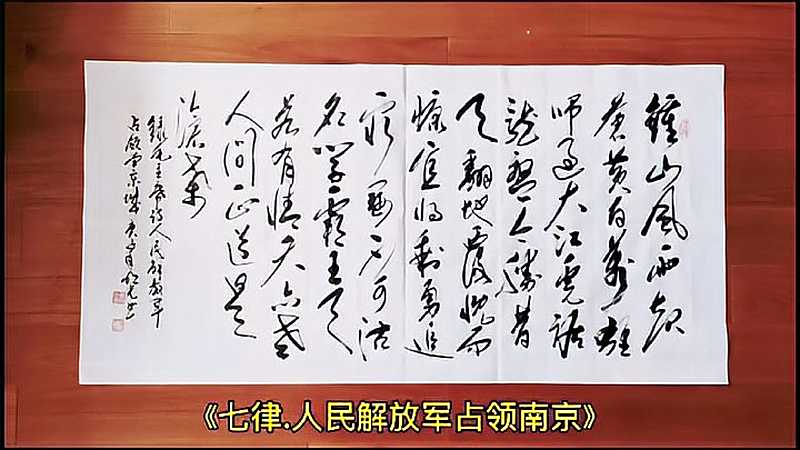 鍾山風雨起
蒼黄百萬雄
师過大江虎踞
龍盤今勝昔
天翻地覆慨而
慷宜将剩勇追
窮寇不可沽
名学霸王天
若有情天亦老
人间正道是
滄桑
録毛主席詩人民解放軍
占领南京
《七律.人民解放军占领南京》